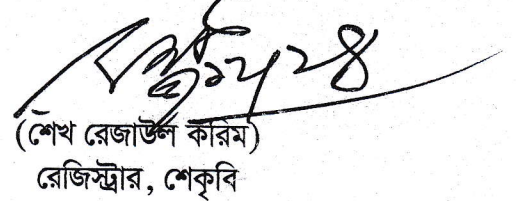 (শেখ রেজাউল করিম)
রেজিস্ট্রার, শেকৃবি